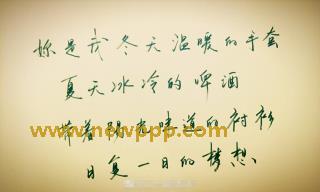 妳是我冬天温暖的手套
夏天冰冷的啤酒
带着阳光味道的衬衫
日复一日的梦想
www.newppp.com